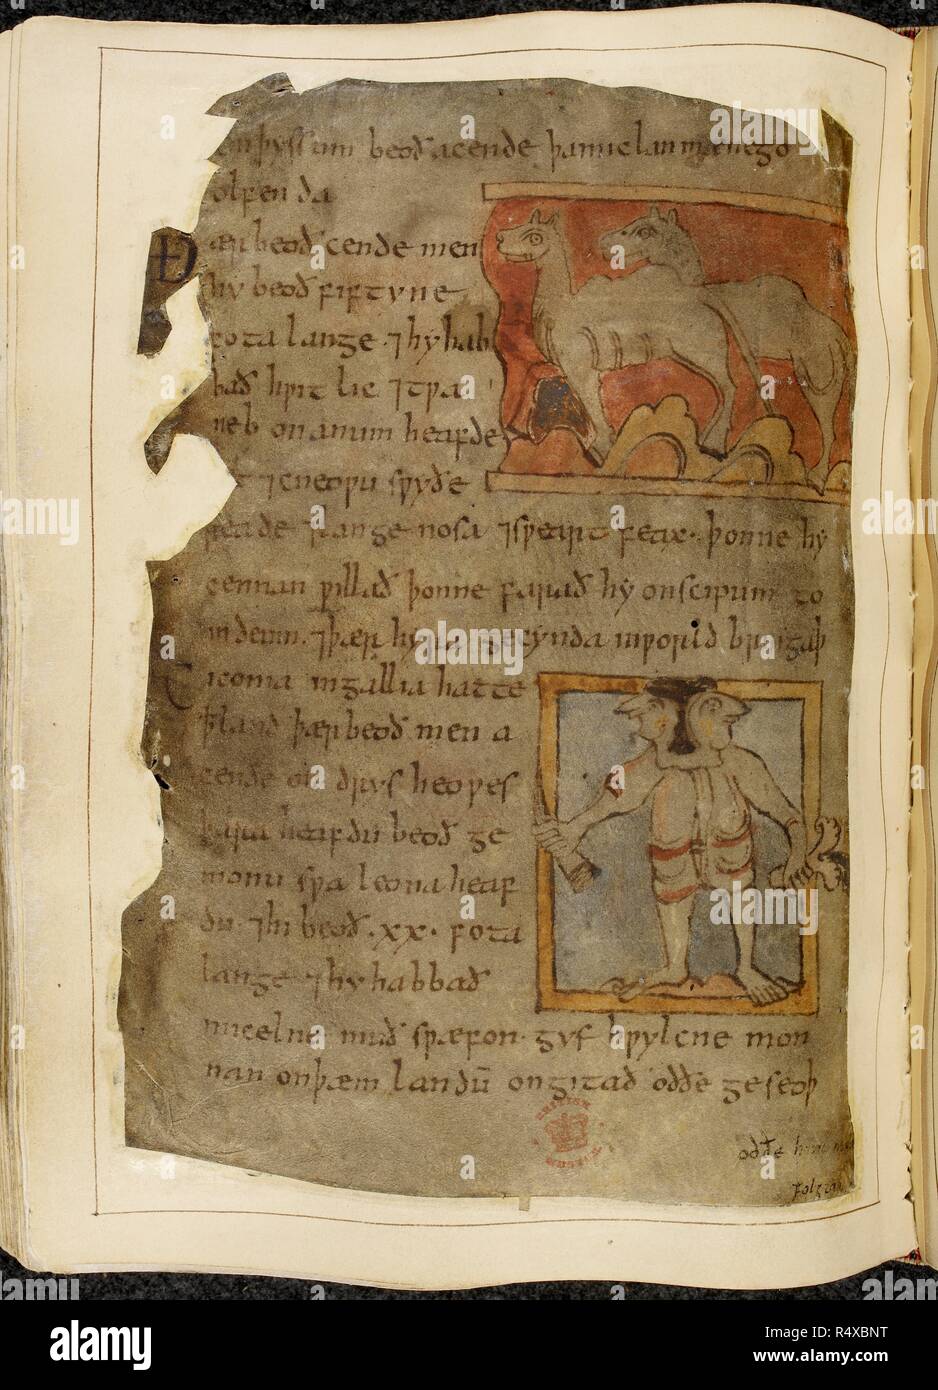 þyssum beoð acende þa miclan mænego
olfenda
Ðær beoð cende men
hy beoð fiftyne
fota lange ⁊ hy hab
bað hƿit lic ⁊ tƿa
neb on anum heafde
⁊ cneoƿu sƿyðe
reade ⁊ lange nosa ⁊ sƿeart feax · þonne hy
cennan ƿillað þonne farað hy on scipum to
indeum · ⁊ þær hyra gecynda in ƿoruld bringaþ
Ciconia in gallia hatte
þ land þær beoð men a
cende on drys heoƿes
þara heafdu beoð ge
monu sƿa leona heaf
du · ⁊ hi beoð · xx · fota
lange ⁊ hy habbað
micelne muð sƿa fon · gyf hƿylcne mon
nan on þæm landū ongitað oððe geseoþ
oððe him
folgi
BRITISH MUSEUM
alamy
Image ID: R4XBNT
www.alamy.com